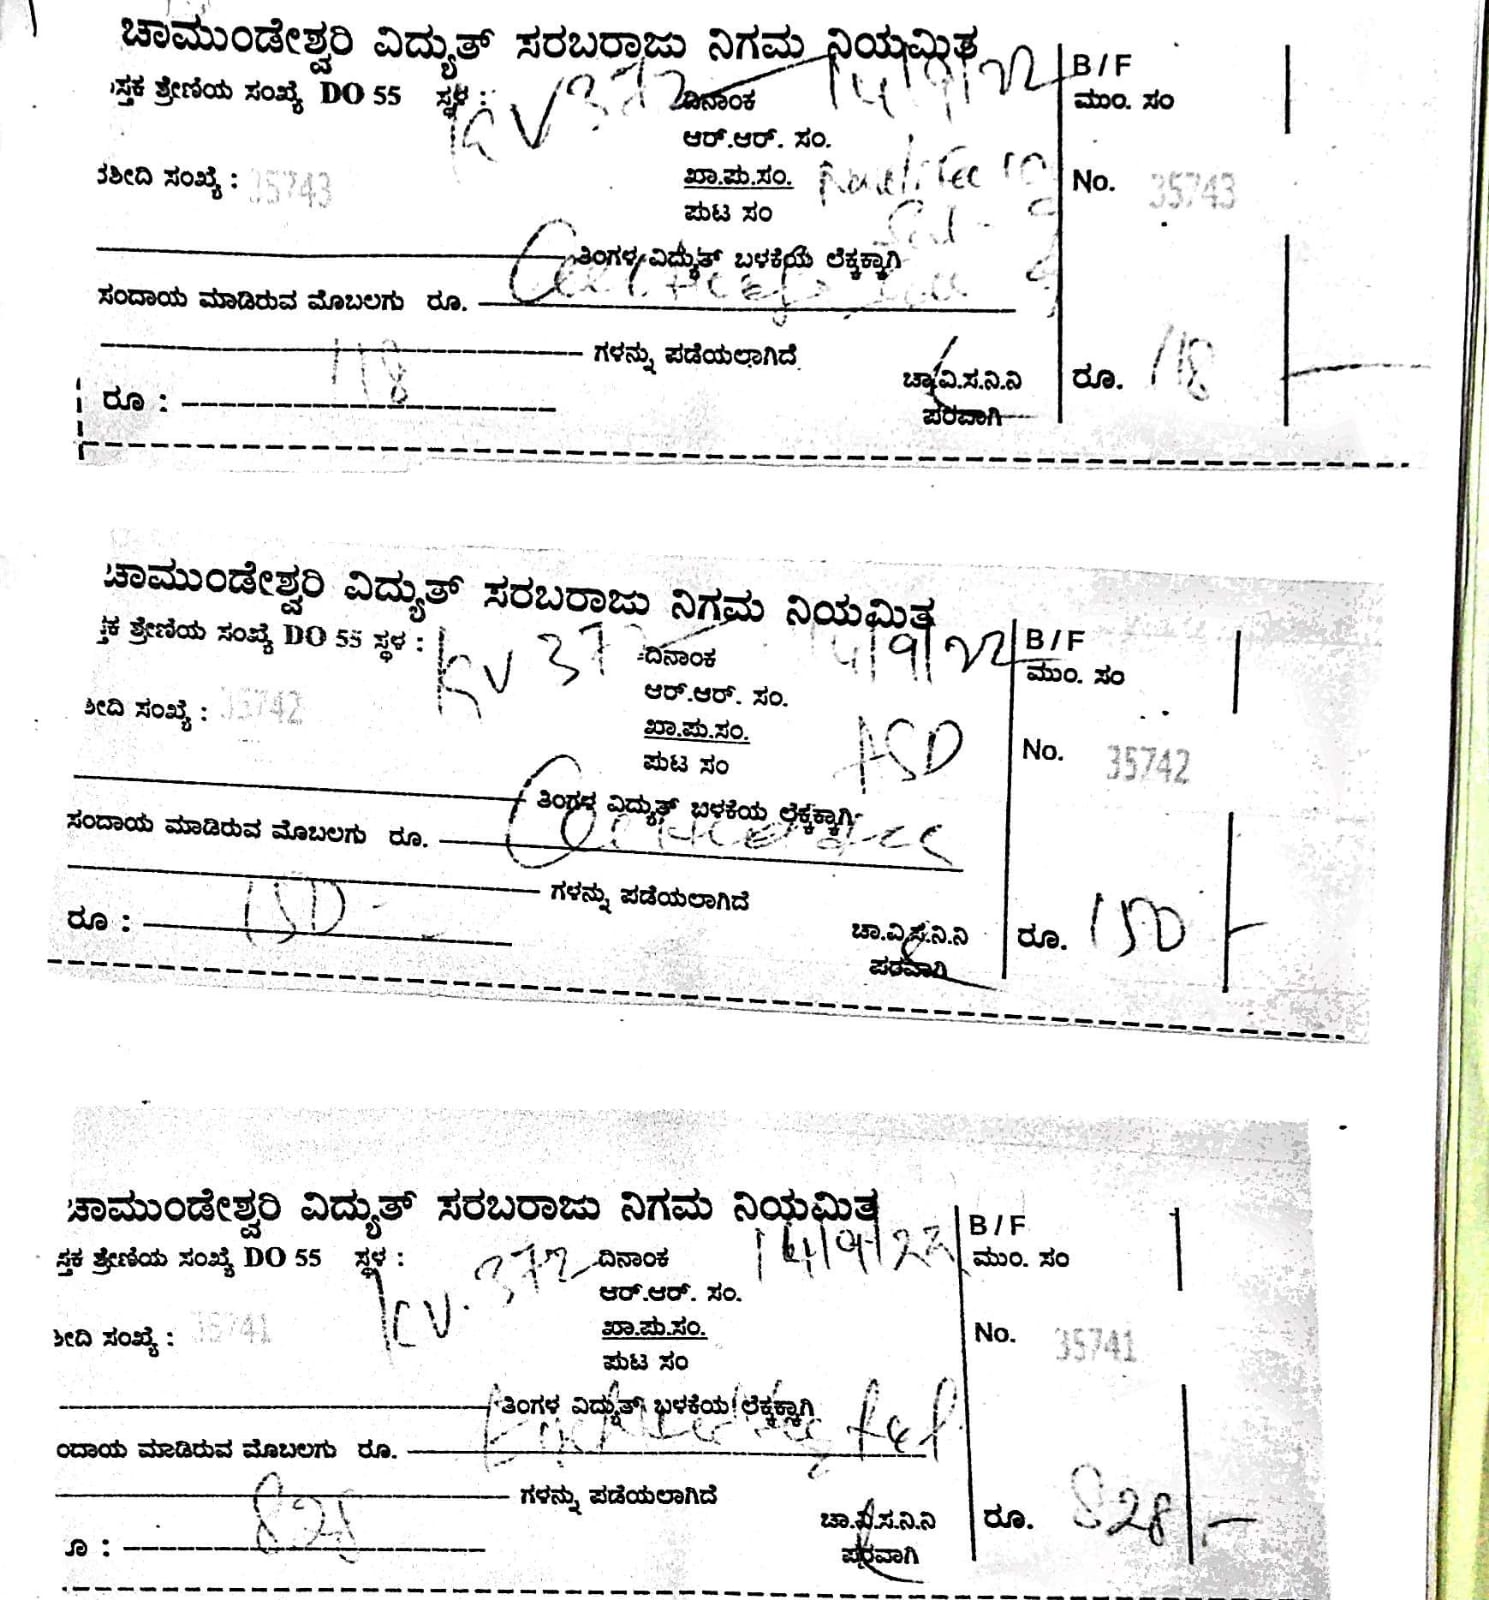 ಚಾಮುಂಡೇಶ್ವರಿ ವಿದ್ಯುತ್ ಸರಬರಾಜು ನಿಗಮ ನಿಯಮಿತ
ಸ್ತಕ ಶ್ರೇಣಿಯ ಸಂಖ್ಯೆ DO 55 ಸ್ಥಳ : KV 372 ದಿನಾಂಕ 14/9/22 B / F
ಮುಂ. ಸಂ
ಆರ್.ಆರ್. ಸಂ.
ರಶೀದಿ ಸಂಖ್ಯೆ : 35743 ಖಾ.ಪು.ಸಂ. No. 35743
ಪುಟ ಸಂ
ತಿಂಗಳ ವಿದ್ಯುತ್ ಬಳಕೆಯ ಲೆಕ್ಕಕ್ಕಾಗಿ
ಸಂದಾಯ ಮಾಡಿರುವ ಮೊಬಲಗು ರೂ.
ಗಳನ್ನು ಪಡೆಯಲಾಗಿದೆ
ರೂ : 118 ಚಾ.ವಿ.ಸ.ನಿ.ನಿ ರೂ. 118
ಪರವಾಗಿ
ಚಾಮುಂಡೇಶ್ವರಿ ವಿದ್ಯುತ್ ಸರಬರಾಜು ನಿಗಮ ನಿಯಮಿತ
ಸ್ತಕ ಶ್ರೇಣಿಯ ಸಂಖ್ಯೆ DO 55 ಸ್ಥಳ : KV 372 ದಿನಾಂಕ 14/9/22 B / F
ಮುಂ. ಸಂ
ಆರ್.ಆರ್. ಸಂ.
ಶೀದಿ ಸಂಖ್ಯೆ : 35742 ಖಾ.ಪು.ಸಂ. ASD No. 35742
ಪುಟ ಸಂ
ತಿಂಗಳ ವಿದ್ಯುತ್ ಬಳಕೆಯ ಲೆಕ್ಕಕ್ಕಾಗಿ
ಸಂದಾಯ ಮಾಡಿರುವ ಮೊಬಲಗು ರೂ.
ಗಳನ್ನು ಪಡೆಯಲಾಗಿದೆ
ರೂ : 150 ಚಾ.ವಿ.ಸ.ನಿ.ನಿ ರೂ. 150
ಪರವಾಗಿ
ಚಾಮುಂಡೇಶ್ವರಿ ವಿದ್ಯುತ್ ಸರಬರಾಜು ನಿಗಮ ನಿಯಮಿತ
ಸ್ತಕ ಶ್ರೇಣಿಯ ಸಂಖ್ಯೆ DO 55 ಸ್ಥಳ : KV. 372 ದಿನಾಂಕ 14/9/22 B / F
ಮುಂ. ಸಂ
ಆರ್.ಆರ್. ಸಂ.
ಶೀದಿ ಸಂಖ್ಯೆ : 35741 ಖಾ.ಪು.ಸಂ. No. 35741
ಪುಟ ಸಂ
ತಿಂಗಳ ವಿದ್ಯುತ್ ಬಳಕೆಯ ಲೆಕ್ಕಕ್ಕಾಗಿ
ಂದಾಯ ಮಾಡಿರುವ ಮೊಬಲಗು ರೂ.
ಗಳನ್ನು ಪಡೆಯಲಾಗಿದೆ
ೂ : 828 ಚಾ.ವಿ.ಸ.ನಿ.ನಿ ರೂ. 828/-
ಪರವಾಗಿ